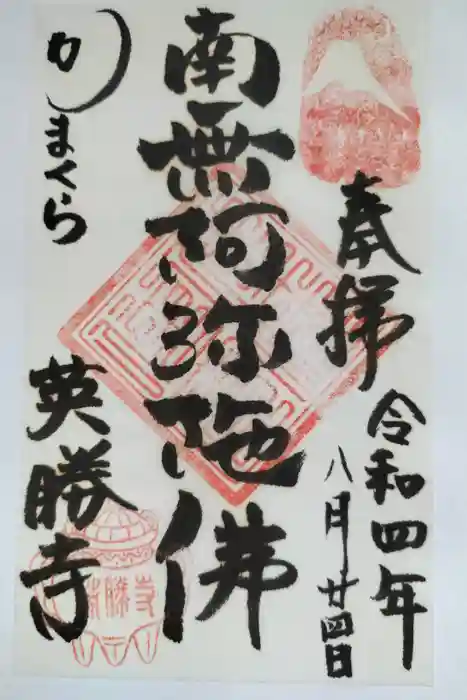 奉拝
令和四年
八月廿四日
南無阿弥陀佛
かまくら
英勝寺
英勝寺